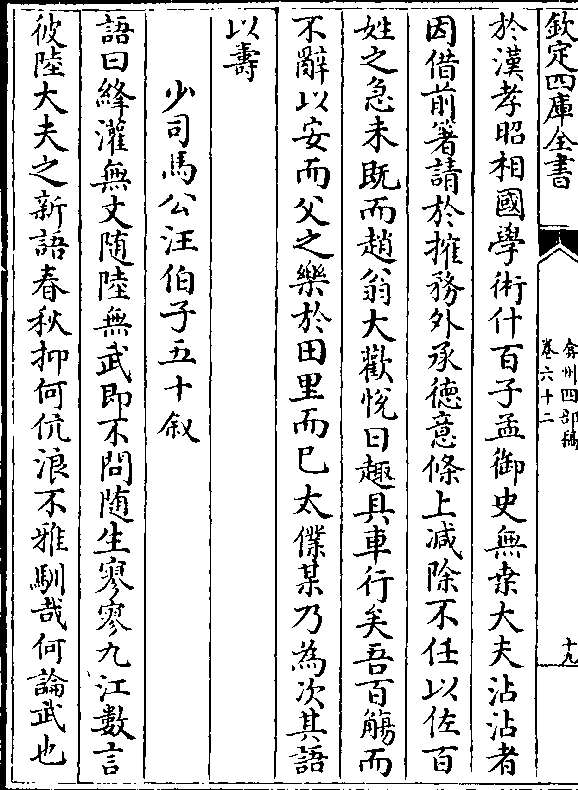 欽定四庫全書
弇州四部稿
卷六十二
十九
於漢孝昭相國學術什百子孟御史無桒大夫沾沾者
因借前箸請於搉務外承德意條上减除不任以佐百
姓之急未既而趙翁大歡悅曰趣具車行矣吾百觴而
不辭以安而父之樂於田里而已太僕某乃為次其語
以壽
少司馬公汪伯子五十叙
語曰絳灌無文随陸無武即不問随生寥寥九江數言
彼陸大夫之新語春秋抑何伉浪不雅馴哉何論武也